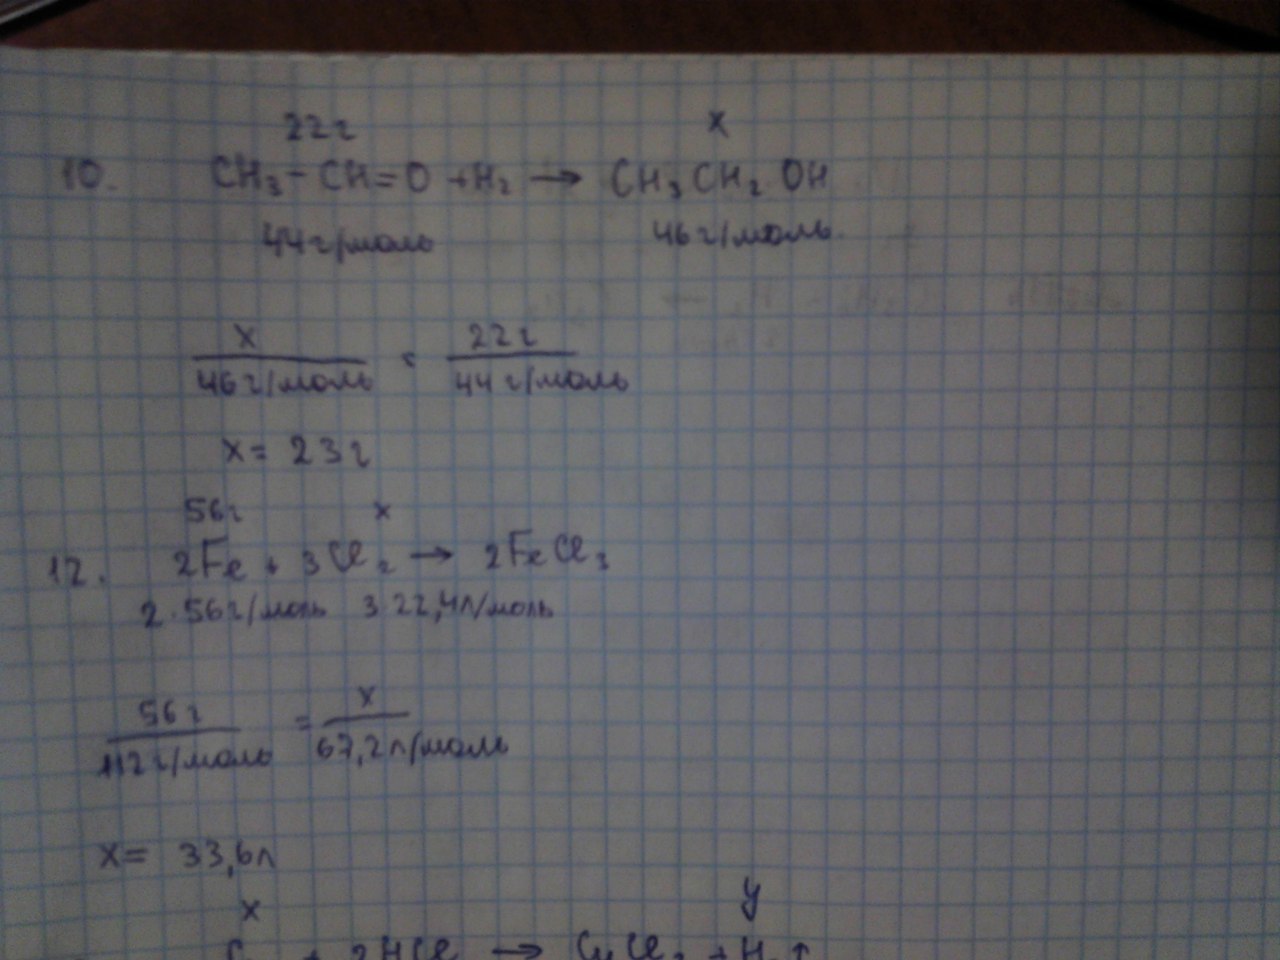 22г x
10. CH₃-CH=O +H₂ → CH₃CH₂OH
44г/моль 46г/моль
x = 22г
46г/моль 44г/моль
x= 23г
56г x
12. 2Fe + 3Cl₂ → 2FeCl₃
2·56г/моль 3 22,4л/моль
56г = x
112г/моль 67,2л/моль
x= 33,6л
x y
+ 2HCl → + H₂↑